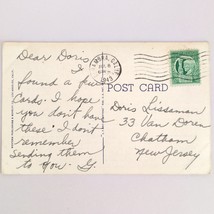 Dear Doris
I
found a few
Cards. I hope
you don't have
these. I don't
remember
sending them
to you. G.
POST CARD
CALIF.
1943
Doris Lissaman
33 Van Doren
Chatham
New Jersey